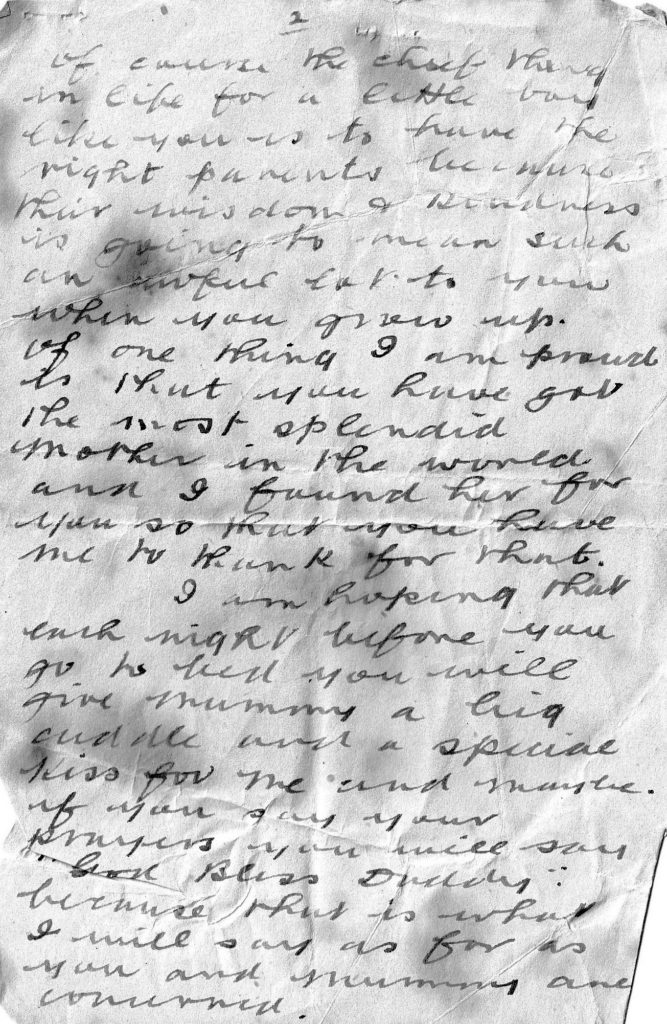 2
of course the chief thing
in life for a little boy
like you is to have the
right parents because
their wisdom & kindness
is going to mean such
an awful lot to you
when you grow up.
Of one thing I am proud
is that you have got
the most splendid
Mother in the world
and I found her for
you so that you have
me to thank for that.
I am hoping that
each night before you
go to bed you will
give Mummy a big
cuddle and a special
kiss for me and maybe.
if you say your
prayers you will say
"God Bless Daddy".
because that is what
I will say as for as
you and Mummy are
concerned.